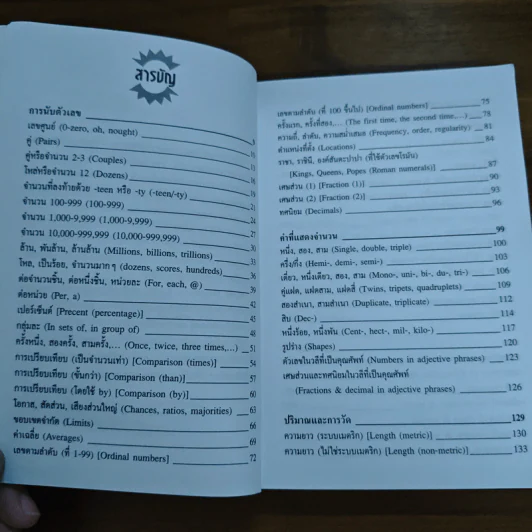 สารบัญ
การนับตัวเลข
เลขศูนย์ (0-zero, oh, nought)
คู่ (Pairs)
คู่หรือจำนวน 2-3 (Couples)
โหลหรือจำนวน 12 (Dozens)
จำนวนที่ลงท้ายด้วย -teen หรือ -ty (-teen/-ty)
จำนวน 100-999 (100-999)
จำนวน 1,000-9,999 (1,000-9,999)
จำนวน 10,000-999,999 (10,000-999,999)
ล้าน, พันล้าน, ล้านล้าน (Millions, billions, trillions) 33
โหล, เป็นร้อย, จำนวนมาก ๆ (dozens, scores, hundreds) 36
ต่อจำนวนชิ้น, ต่อหนึ่งชิ้น, หน่วยละ (For, each, @) 39
ต่อหน่วย (Per, a) 42
เปอร์เซ็นต์ [Precent (percentage)] 45
กลุ่มละ (In sets of, in group of) 48
ครั้งหนึ่ง, สองครั้ง, สามครั้ง,... (Once, twice, three times,...) 51
การเปรียบเทียบ (เป็นจำนวนเท่า) [Comparison (times)] 54
การเปรียบเทียบ (ขั้นกว่า) [Comparison (than)] 57
การเปรียบเทียบ (โดยใช้ by) [Comparison (by)] 60
โอกาส, สัดส่วน, เสียงส่วนใหญ่ (Chances, ratios, majorities) 63
ขอบเขตจำกัด (Limits) 66
ค่าเฉลี่ย (Averages) 69
เลขตามลำดับ (ที่ 1-99) [Ordinal numbers] 72
เลขตามลำดับ (ที่ 100 ขึ้นไป) [Ordinal numbers] 75
ครั้งแรก, ครั้งที่สอง,... (The first time, the second time,...) 78
ความถี่, ลำดับ, ความสม่ำเสมอ (Frequency, order, regularity) 81
ตำแหน่งที่ตั้ง (Locations) 84
ราชา, ราชินี, องค์สันตะปาปา (ที่ใช้ตัวเลขโรมัน)
[Kings, Queens, Popes (Roman numerals)] 87
เศษส่วน (1) [Fraction (1)] 90
เศษส่วน (2) [Fraction (2)] 93
ทศนิยม (Decimals) 96
คำที่แสดงจำนวน 99
หนึ่ง, สอง, สาม (Single, double, triple) 100
ครึ่ง/กึ่ง (Hemi-, demi-, semi-) 103
เดี่ยว, หนึ่งเดียว, สอง, สาม (Mono-, uni-, bi-, du-, tri-) 106
คู่แฝด, แฝดสาม, แฝดสี่ (Twins, tripets, quadruplets) 109
สองสำเนา, สามสำเนา (Duplicate, triplicate) 112
สิบ (Dec-) 114
หนึ่งร้อย, หนึ่งพัน (Cent-, hect-, mil-, kilo-) 117
รูปร่าง (Shapes) 120
ตัวเลขในวลีที่เป็นคุณศัพท์ (Numbers in adjective phrases) 123
เศษส่วนและทศนิยมในวลีที่เป็นคุณศัพท์
(Fractions & decimal in adjective phrases) 126
ปริมาณและการวัด 129
ความยาว (ระบบเมตริก) [Length (metric)] 130
ความยาว (ไม่ใช่ระบบเมตริก) [Length (non-metric)] 133